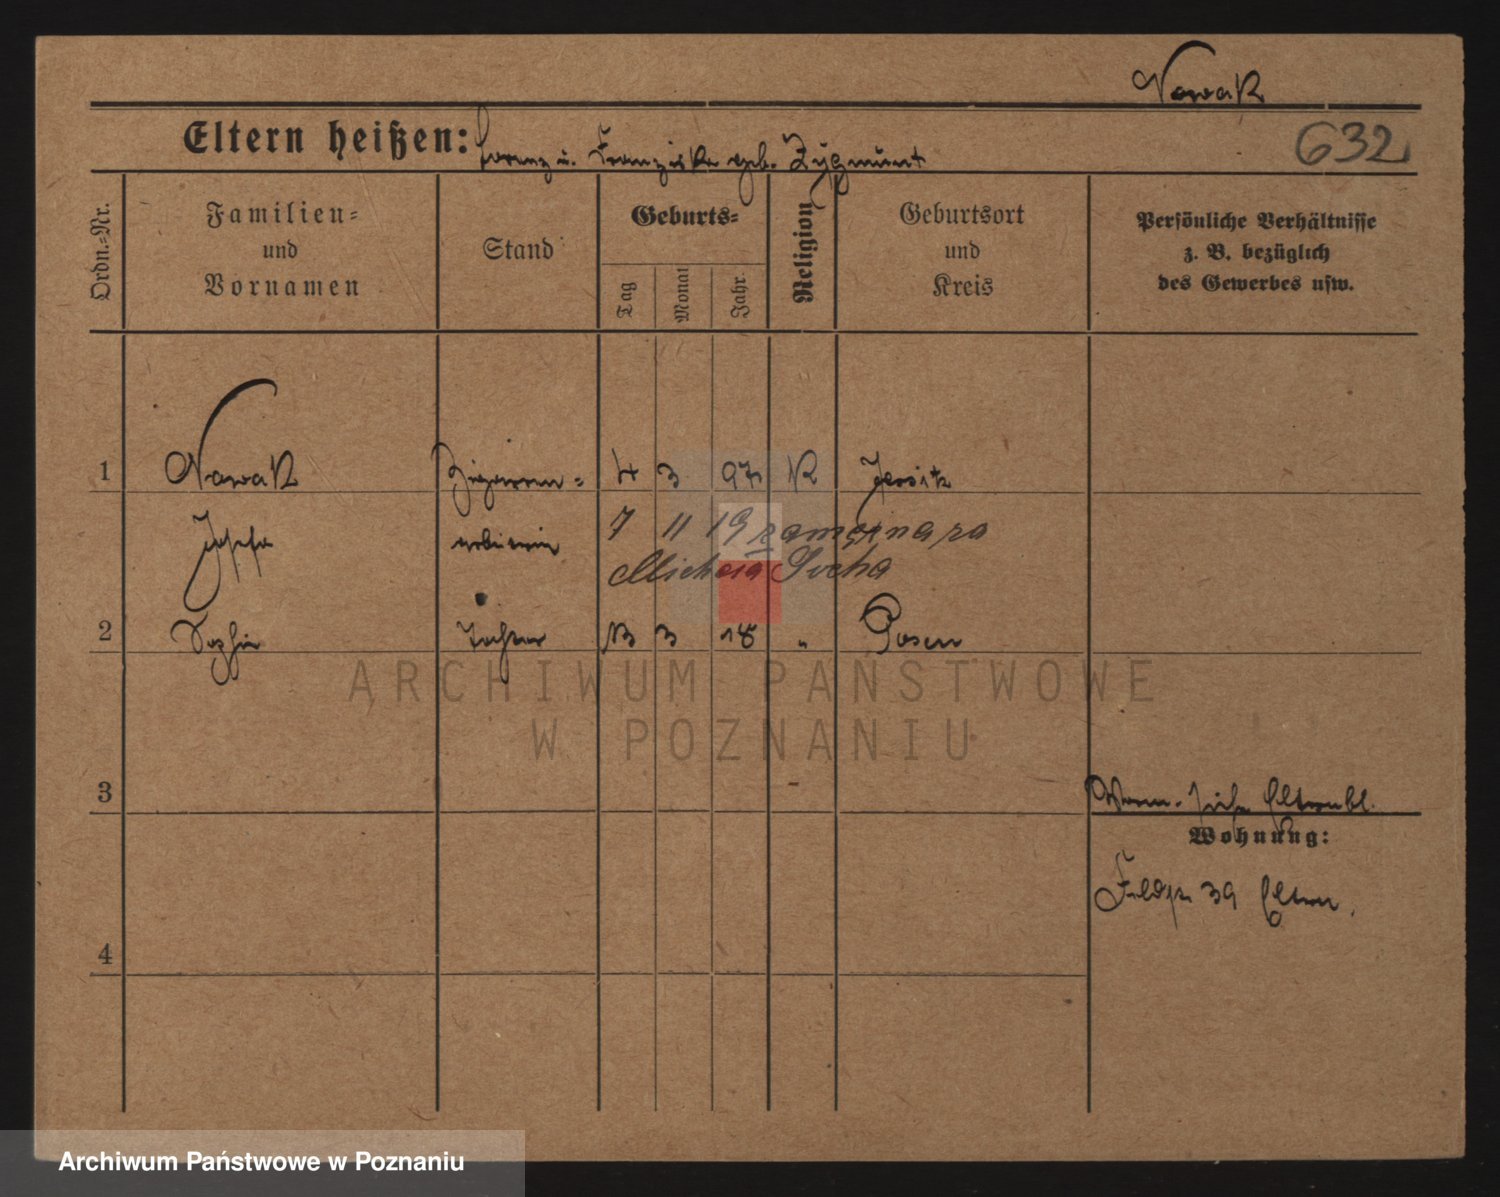 Nowak
Eltern heißen: Lorenz u. Franziska geb. Zygmunt
632
Ordn.=Nr.
Familien= und Vornamen
Stand
Geburts=
Tag
Monat
Jahr
Religion
Geburtsort und Kreis
Persönliche Verhältnisse z. B. bezüglich des Gewerbes usw.
1 Nowak Zigarren= 4 3 97 K Jersitz
Josefa arbeiterin 7 11 19 zamężna za
Michała Sucha
2 Sophie Tochter 13 3 18 " Posen
ARCHIWUM PAŃSTWOWE
W POZNANIU
3
Wohnung:
Feldstr 39 Eltern.
4
Archiwum Państwowe w Poznaniu